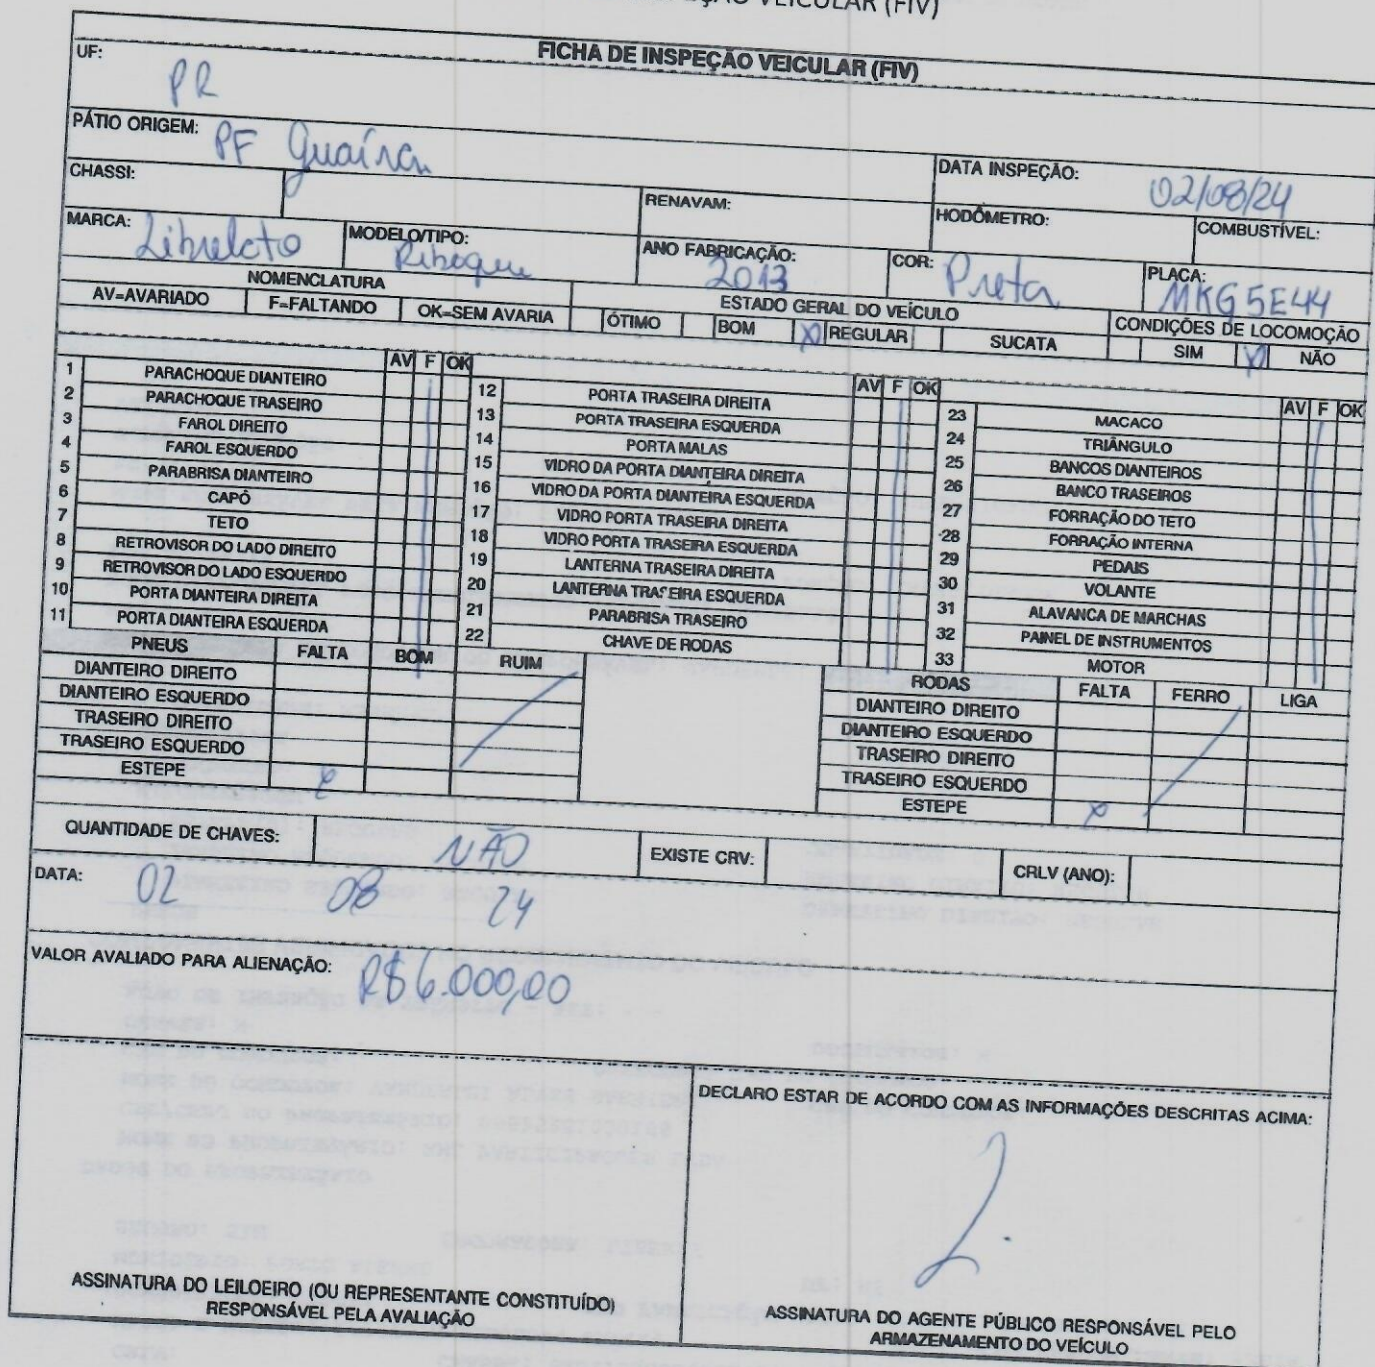 ÇÃO VEICULAR (FIV)
FICHA DE INSPEÇÃO VEICULAR (FIV)
UF: PR
PÁTIO ORIGEM: PF Guaíra
DATA INSPEÇÃO: 02/08/24
CHASSI:
RENAVAM:
HODÔMETRO:
COMBUSTÍVEL:
MARCA: Librelato
MODELO/TIPO: Reboque
ANO FABRICAÇÃO: 2013
COR: Preta
PLACA: MKG5E44
NOMENCLATURA
ESTADO GERAL DO VEÍCULO
CONDIÇÕES DE LOCOMOÇÃO
AV=AVARIADO F=FALTANDO OK=SEM AVARIA ÓTIMO BOM X REGULAR SUCATA SIM X NÃO
AV F OK
1 PARACHOQUE DIANTEIRO
2 PARACHOQUE TRASEIRO
3 FAROL DIREITO
4 FAROL ESQUERDO
5 PARABRISA DIANTEIRO
6 CAPÔ
7 TETO
8 RETROVISOR DO LADO DIREITO
9 RETROVISOR DO LADO ESQUERDO
10 PORTA DIANTEIRA DIREITA
11 PORTA DIANTEIRA ESQUERDA
AV F OK
12 PORTA TRASEIRA DIREITA
13 PORTA TRASEIRA ESQUERDA
14 PORTA MALAS
15 VIDRO DA PORTA DIANTEIRA DIREITA
16 VIDRO DA PORTA DIANTEIRA ESQUERDA
17 VIDRO PORTA TRASEIRA DIREITA
18 VIDRO PORTA TRASEIRA ESQUERDA
19 LANTERNA TRASEIRA DIREITA
20 LANTERNA TRASEIRA ESQUERDA
21 PARABRISA TRASEIRO
22 CHAVE DE RODAS
AV F OK
23 MACACO
24 TRIÂNGULO
25 BANCOS DIANTEIROS
26 BANCO TRASEIROS
27 FORRAÇÃO DO TETO
28 FORRAÇÃO INTERNA
29 PEDAIS
30 VOLANTE
31 ALAVANCA DE MARCHAS
32 PAINEL DE INSTRUMENTOS
33 MOTOR
PNEUS FALTA BOM RUIM
DIANTEIRO DIREITO
DIANTEIRO ESQUERDO
TRASEIRO DIREITO
TRASEIRO ESQUERDO
ESTEPE X
RODAS FALTA FERRO LIGA
DIANTEIRO DIREITO
DIANTEIRO ESQUERDO
TRASEIRO DIREITO
TRASEIRO ESQUERDO
ESTEPE X
QUANTIDADE DE CHAVES: NÃO
EXISTE CRV:
CRLV (ANO):
DATA: 02 08 24
VALOR AVALIADO PARA ALIENAÇÃO: R$6.000,00
DECLARO ESTAR DE ACORDO COM AS INFORMAÇÕES DESCRITAS ACIMA:
ASSINATURA DO LEILOEIRO (OU REPRESENTANTE CONSTITUÍDO)
RESPONSÁVEL PELA AVALIAÇÃO
ASSINATURA DO AGENTE PÚBLICO RESPONSÁVEL PELO
ARMAZENAMENTO DO VEÍCULO